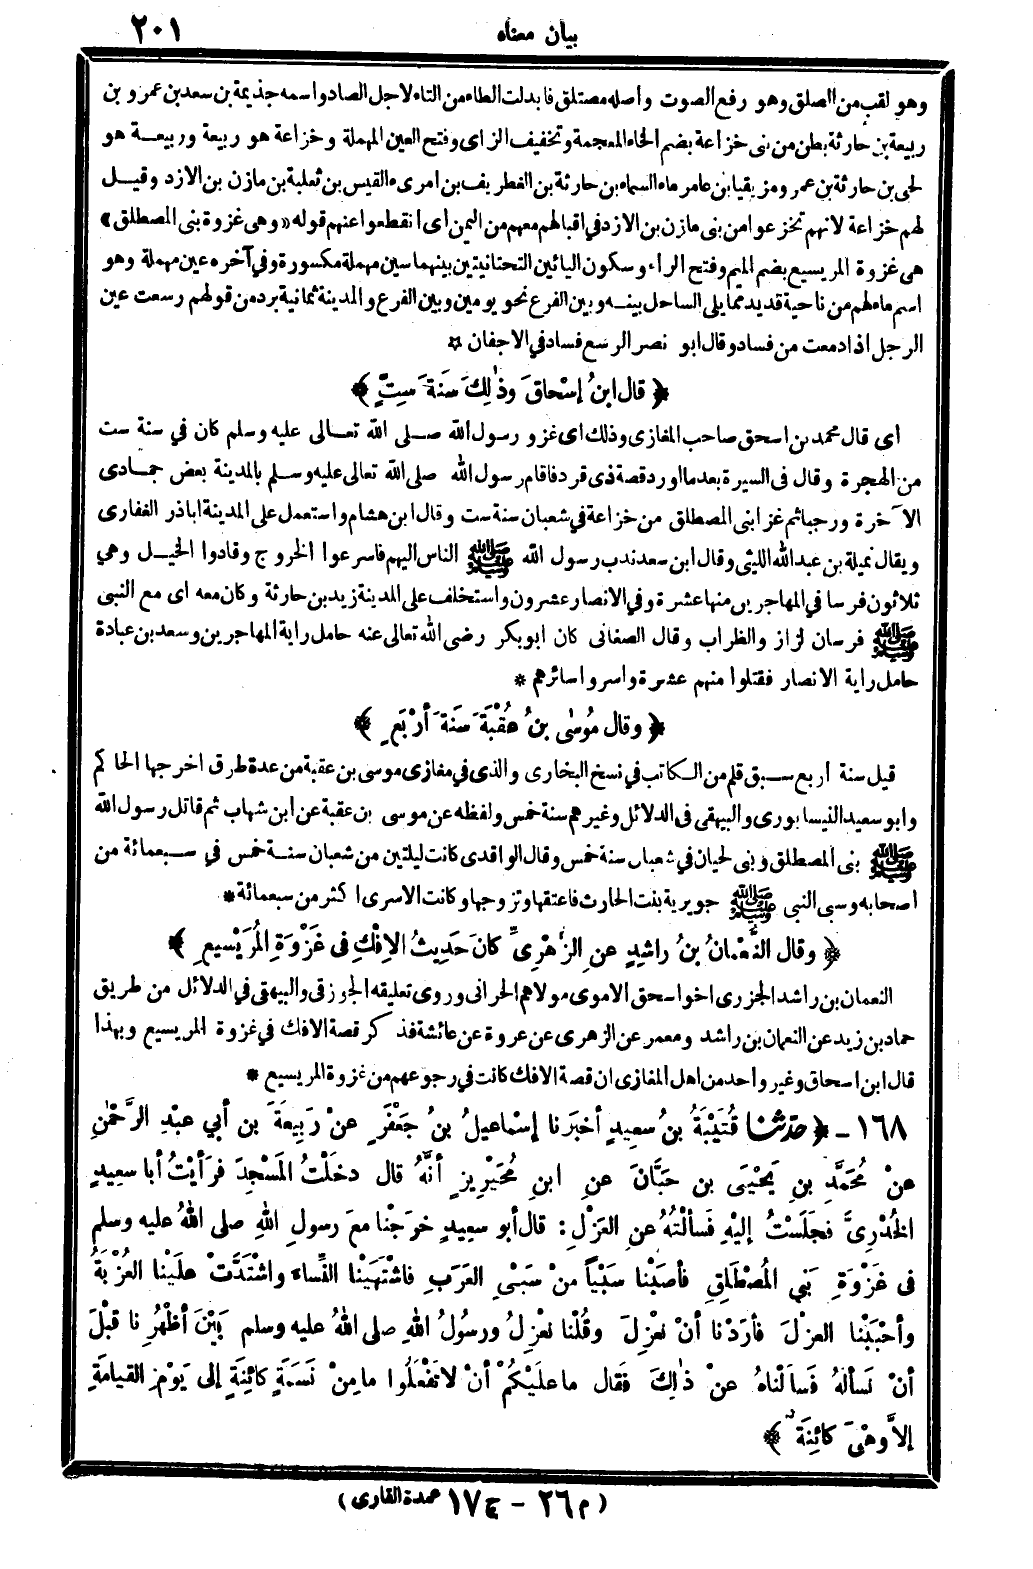 بيان معناه ٢٠١
وهو لقب من الصلق وهو رفع الصوت وأصله مصتلق فابدلت الطاء من التاء لاجل الصاد واسمه جذيمة بن سعد بن عمرو بن
ربيعة بن حارثة بطن من بنى خزاعة بضم الخاء المعجمة وتخفيف الزاى وفتح العين المهملة وخزاعة هو ربيعة وربيعة هو
لحى بن حارثة بن عمرو مزيقيا بن عامر ماء السماء بن حارثة بن الغطريف بن امرىء القيس بن ثعلبة بن مازن بن الازد وقيل
لهم خزاعة لانهم تخزعوا من بنى مازن بن الازد في اقبالهم معهم من اليمن اى انقطعوا عنهم قوله «وهى غزوة بنى المصطلق»
هى غزوة المريسيع بضم الميم وفتح الراء وسكون اليائين التحتانيتين بينهما سين مهملة مكسورة وفي آخره عين مهملة وهو
اسم ماء لهم من ناحية قديد مما يلى الساحل بينه وبين الفرع نحو يومين وبين الفرع والمدينة ثمانية برد من قولهم رسعت عين
الرجل اذا دمعت من فساد وقال ابو نصر الرسع فساد في الاجفان *
﴿ قال ابنُ إسْحاقَ وذٰلِكَ سَنَةَ سِتٍّ ﴾
أى قال محمد بن اسحق صاحب المغازى وذلك اى غزو رسول الله صلى الله تعالى عليه وسلم كان في سنة ست
من الهجرة وقال فى السيرة بعد ما اورد قصة ذى قرد فاقام رسول الله صلى الله تعالى عليه وسلم بالمدينة بعض جمادى
الآخرة ورجبا ثم غزا بنى المصطلق من خزاعة في شعبان سنة ست وقال ابن هشام واستعمل على المدينة اباذر الغفارى
ويقال نميلة بن عبد الله الليثى وقال ابن سعد ندب رسول الله ﷺ الناس اليهم فاسرعوا الخروج وقادوا الخيل وهي
ثلاثون فرسا في المهاجرين منها عشرة وفي الانصار عشرون واستخلف على المدينة زيد بن حارثة وكان معه اى مع النبى
ﷺ فرسان لزاز والظراب وقال الصغانى كان ابوبكر رضى الله تعالى عنه حامل راية المهاجرين وسعد بن عبادة
حامل راية الانصار فقتلوا منهم عشرة واسروا سائرهم *
﴿ وقال مُوسٰى بنُ عُقْبَةَ سَنَةَ أرْبَعٍ ﴾
قيل سنة اربع سبق قلم من الكاتب في نسخ البخارى والذى في مغازى موسى بن عقبة من عدة طرق اخرجها الحاكم
وابو سعيد النيسابورى والبيهقى فى الدلائل وغيرهم سنة خمس ولفظه عن موسى بن عقبة عن ابن شهاب ثم قاتل رسول الله
ﷺ بنى المصطلق وبنى لحيان في شعبان سنة خمس وقال الواقدى كانت ليلتين من شعبان سنة خمس في سبعمائة من
اصحابه وسبى النبى ﷺ جويرية بنت الحارث فاعتقها وتزوجها وكانت الاسرى اكثر من سبعمائة *
﴿ وقال النُّعْمانُ بنُ راشِدٍ عنِ الزُّهْرِىِّ كانَ حَدِيثُ الإفْكِ فى غَزْوَةِ المُرَيْسِيعِ ﴾
النعمان بن راشد الجزرى اخو اسحق الاموى مولاهم الحرانى وروى تعليقه الجوزقى والبيهقى في الدلائل من طريق
حماد بن زيد عن النعمان بن راشد ومعمر عن الزهرى عن عروة عن عائشة فذكر قصة الافك في غزوة المريسيع وبهذا
قال ابن اسحاق وغير واحد من اهل المغازى ان قصة الافك كانت في رجوعهم من غزوة المريسيع *
١٦٨ - ﴿ حدثنا قُتَيْبَةُ بنُ سعيدٍ أخبرَنا إسْماعيلُ بنُ جَعْفَرٍ عنْ رَبِيعَةَ بن أبي عبْدِ الرَّحْمٰنِ
عنْ مُحَمَّدِ بنِ يَحْيَى بن حَبَّانَ عنِ ابنِ مُحَيْرِيزٍ أنَّهُ قال دخَلْتُ المَسْجِدَ فرَأيْتُ أبا سعِيدٍ
الخُدْرِىَّ فجَلَسْتُ إليْهِ فَسألْتُهُ عنِ العَزْلِ : قال أبو سعِيدٍ خرَجْنا معَ رسولِ اللهِ صلى اللهُ عليه وسلم
فى غَزْوَةِ بَنِي المُصْطَلِقِ فأصَبْنا سَبْياً منْ سَبْىِ العَرَبِ فاشْتَهَيْنا النِّساءَ واشْتَدَّتْ علَيْنا العُزْبَةُ
وأحْبَبْنا العزْلَ فأرَدْنا أنْ نَعْزِلَ وقُلْنا نَعْزِلُ ورسُولُ اللهِ صلى اللهُ عليه وسلم بَيْنَ أظْهُرِنا قَبْلَ
أنْ نَسألَهُ فَسألْناهُ عنْ ذٰلِكَ فَقال ما علَيْكُمْ أنْ لا تَفْعَلُوا ما مِنْ نَسَمَةٍ كائِنَةٍ إلى يَوْمِ القِيامَةِ
إلاَّ وهْىَ كائِنَةٌ ﴾
(م ٢٦ - ج ١٧ عمدة القارى)